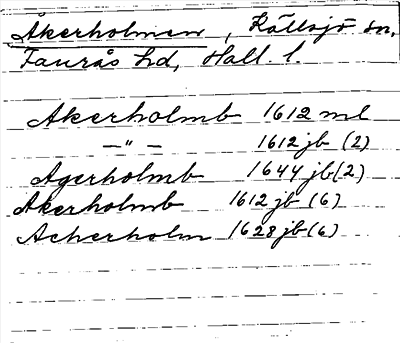 Åkerholmen, Källsjö sn,
Faurås hd, Hall. l.
Akerholmb 1612 ml
—"— 1612 jb (2)
Agerholmb 1644 jb (2)
Akerholmb 1612 jb (6)
Acherholm 1628 jb (6)